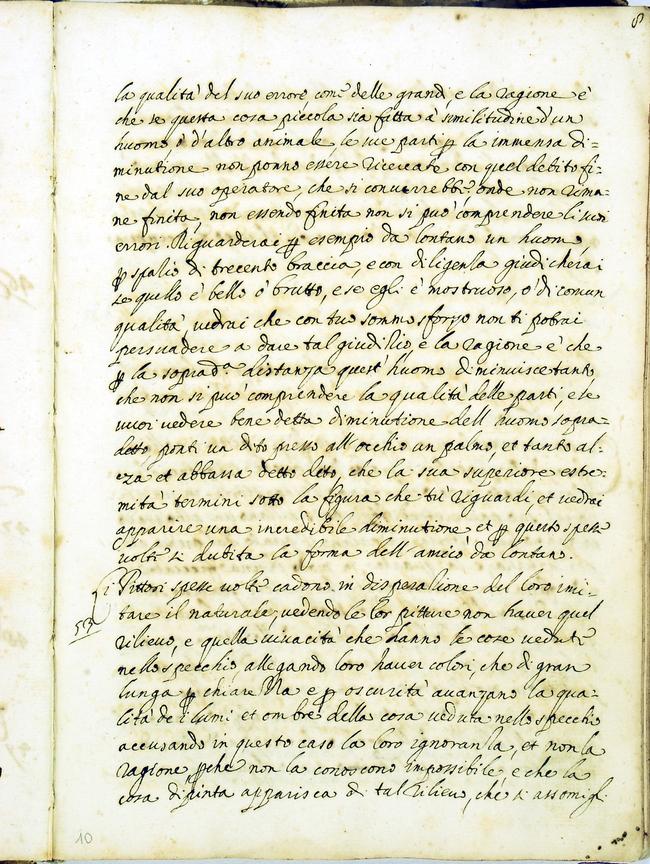 8
la qualità del suo errore, come delle grandi, e la ragione è
che se questa cosa piccola sia fatta à similitudine d'un
huomo, ò d'altro animale, le sue parti p la immensa di=
minutione non ponno essere ricercate con quel debito fi=
ne dal suo operatore, che si converrebbe, onde non rima=
ne finita, non essendo finita non si può comprendere li suoi
errori. Riguarderai p esempio da lontano un huomo,
p spatio di trecento braccia, e con diligenza giudicherai
se quello è bello ò brutto, e se egli è mostruoso, ò di comun
qualità, vedrai che con tuo sommo sforzo non ti potrai
persuadere a dare tal giuditio, e la ragione è che
p la soprad.ª distanza quest'huomo diminuisce tanto
che non si può comprendere la qualità delle parti, e se
vuoi vedere bene detta diminutione dell'huomo sopra=
detto ponti un dito presso all'occhio un palmo, et tanto al=
za et abbassa detto deto, che la sua superiore estre=
mità termini sotto la figura che tù riguardi, et vedrai
apparire una incredibile diminutione et p questo spesse
volte si dubita la forma dell'amico da lontano.
53
i Pittori spesse volte cadono in disperatione del loro imi=
tare il naturale, vedendo le lor pitture non haver quel
rilievo, e quella vivacità che hanno le cose vedute
nello specchio allegando loro haver colori, che di gran
lunga p chiarezza e p oscurità avanzano la qua=
lità de i lumi et ombre della cosa veduta nello specchio
accusando in questo caso la loro ignoranza, et non la
ragione pche non la conoscono impossibile, e che la
cosa dipinta apparisca di tal rilievo, che si assomigli
10